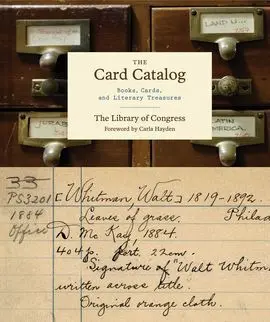 LAND U
THE
Card Catalog
Books, Cards,
and Literary Treasures
The Library of Congress
Foreword by Carla Hayden
LATIN
AMERICA.
33
PS3201 [Whitman, Walt] 1819-1892.
1884 Leaves of grass. Philad
Office D. McKay, 1884.
404 p. port. 22cm.
Signature of "Walt Whitm
written across title.
Original orange cloth.